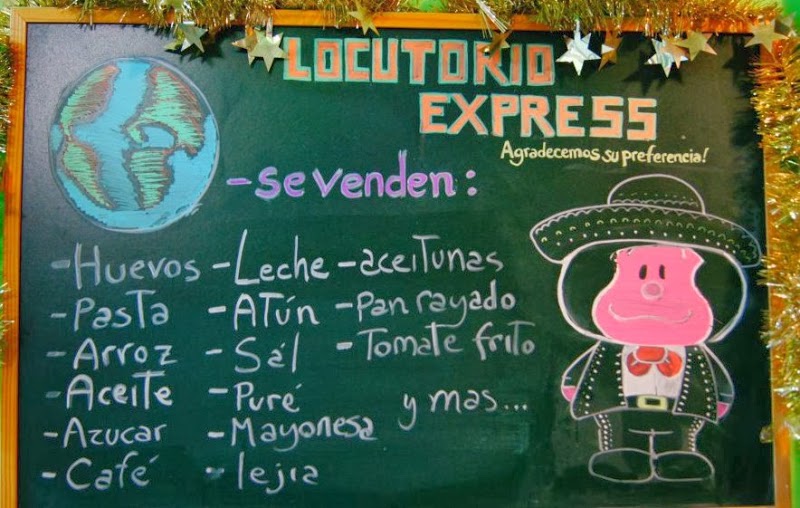 LOCUTORIO
EXPRESS
Agradecemos su preferencia!
- se venden :
- Huevos
- Pasta
- Arroz
- Aceite
- Azucar
- Café
- Leche
- ATún
- Sál
- Puré
- Mayonesa
- lejia
- aceitunas
- pan rayado
- Tomate frito
y mas...